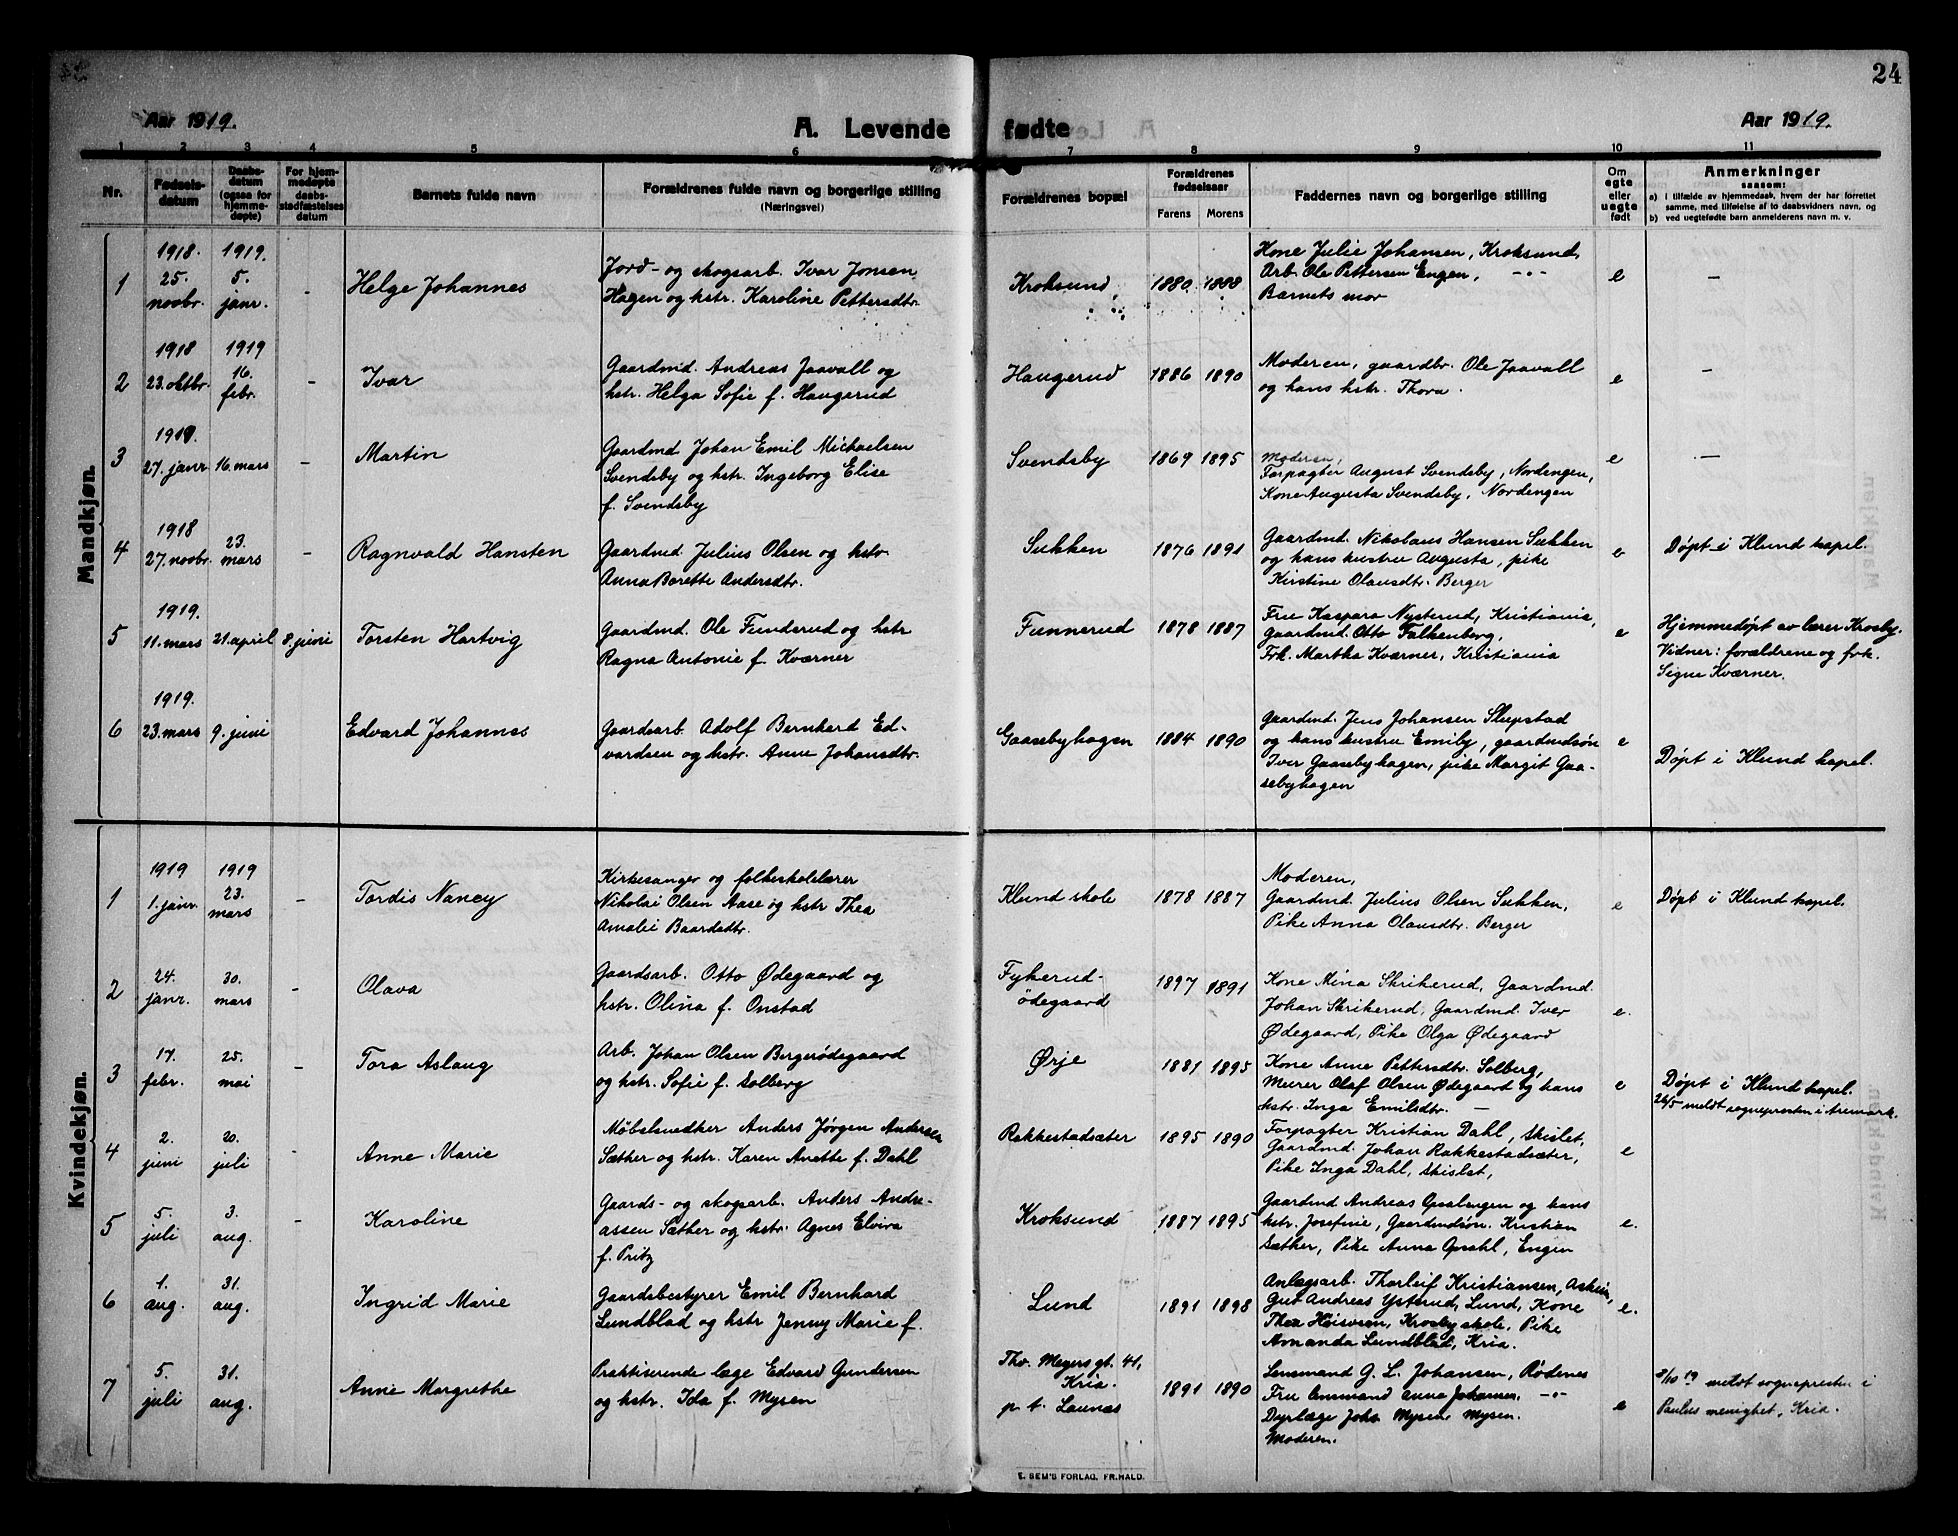 24
Aar 1919.
A. Levende fødte
Aar 1919.
1 2 3 4 5 6 7 8 9 10 11
Nr.
Fødsels-
datum
Daabs-
datum
(ogsaa for
hjemme-
døpte)
For hjem-
medøpte
daabs-
stadfæstelses
datum
Barnets fulde navn
Forældrenes fulde navn og borgerlige stilling
(Næringsvei)
Forældrenes bopæl
Forældrenes
fødselsaar
Farens Morens
Faddernes navn og borgerlige stilling
Om
egte
eller
uegte
født
Anmerkninger
saasom:
a) i tilfælde av hjemmedaab, hvem der har forrettet
samme, med tilføielse af to daabsvidners navn, og
b) ved uegtefødte barn anmelderens navn m. v.
Mandkjøn.
1
1918.
25.
novbr.
1919.
5.
janr.
-
Helge Johannes
Jord- og skogsarb. Ivar Jonsen
Hagen og hstr. Karoline Pettersdtr.
Kroksund
1880 1888
Kone Julie Johansen, Kroksund,
Arb. Ole Pettersen Engen, -"-
Barnets mor
e
-
2
1918
23. oktbr.
1919
16.
febr.
-
Ivar
Gaardmd. Andreas Jaavall og
hstr. Helga Sofie f. Haugerud
Haugerud
1886 1890
Moderen, gaardbr. Ole Jaavall
og hans hstr. Thora.
e
-
3
1919.
27. janr
16. mars
-
Martin
Gaardmd Johan Emil Michaelsen
Svendsby og hstr. Ingeborg Elise
f. Svendsby
Svendsby
1869 1895
Moderen,
Forpagter August Svendsby, Nordengen,
Kone Augusta Svendsby, Nordengen
e
-
4
1918
27. novbr.
23.
mars
-
Ragnvald Hansten
Gaardmd. Julius Olsen og hstr.
Anna Borette Andersdtr.
Sukken
1876 1891
Gaardmd. Nikolaus Hansen Sukken
og hans hustru Augusta, pike
Kirstine Olausdtr. Berger
e
Døpt i Klund kapel.
5
1919.
11. mars
21. april
8. juni
Torsten Hartvig
Gaardmd. Ole Funderud og hstr
Ragna Antonie f. Kværner
Funnerud
1878 1887
Fru Kaspara Nysterud, Kristiania,
Gaardmd. Otto Falkenberg,
Frk. Martha Kværner, Kristiania
e
Hjemmedøpt av lærer Krosby.
Vidner: forældrene og frk.
Signe Kværner.
6
1919.
23. mars
9. juni
Edvard Johannes
Gaardsarb. Adolf Bernhard Ed-
vardsen og hstr. Anne Johansdtr.
Gaasebyhagen
1884 1890
Gaardmd. Jens Johansen Slupstad
og hans hustru Emily, gaardmdsøn
Iver Gaasebyhagen, pike Margit Gaa-
sebyhagen
e
Døpt i Klund kapel.
Kvindekjøn.
1
1919
1. janr.
1919
23.
mars
-
Tordis Nancy
Kirkesanger og folkeskolelærer
Nikolai Olsen Aase og hstr Thea
Amalie Baardsdtr.
Klund skole
1878 1887
Moderen,
Gaardmd. Julius Olsen Sukken,
Pike Anna Olausdtr. Berger
e
Døpt i Klund kapel.
2
24.
janr.
30.
mars
-
Olava
Gaardsarb. Otto Ødegaard og
hstr. Olina f. Onstad
Fykerud-
ødegaard
1897 1891
Kone Mina Skrikerud, Gaardmd.
Johan Skrikerud, Gaardmd. Iver
Ødegaard, Pike Olga Ødegaard
e.
3
17.
febr.
25.
mai
-
Tora Aslaug
Arb. Johan Olsen Bergerødegaard
og hstr. Sofie f. Solberg
Ørje
1881 1895
Kone Anne Pettersdtr. Solberg,
Murer Olaf Olsen Ødegaard og hans
hstr. Inga Emilsdtr. -
e
Døpt i Klund kapel.
26/5 meldt sognepresten i Aremark.
4
2.
juni
20.
juli
-
Anne Marie
Møbelsnedker Anders Jørgen Andersen
Sæther og hstr. Karen Anette f. Dahl
Rakkestadsæter
1895 1890
Forpagter Kristian Dahl, Skislet,
Gaardmd. Johan Rakkestadsæter,
Pike Inga Dahl, Skislet,
e
5
5.
juli
3.
aug.
-
Karoline
Gaards- og skogsarb. Anders Andre-
assen Sæther og hstr. Agnes Elvira
f. Pritz
Kroksund
1887 1895
Gaardmd Andreas Opsalengen og hans
hstr. Josefine, Gaardmdsøn. Kristian
Sæther, Pike Anna Opsahl, Engen
e.
6
1.
aug.
31.
aug.
Ingrid Marie
Gaardsbestyrer Emil Bernhard
Lundblad og hstr Jenny Marie f.
Lund
1891 1898
Anlægsarb. Thorleif Kristiansen, Askim,
Gut Andreas Ysterud, Lund, Kone
Thea Krosby skole, Pike
Amanda Lundblad, Kria.
e.
7
5.
juli
31.
aug.
Anne Margrethe
Praktiserende læge Edvard Gundersen
og hstr. Ida f. Mysen
Thv. Meyers gt. 41,
Kria.
p. t. Launæs
1891 1890
Lensmand G. L. Johansen, Rødenes
Fru Lensmand Anna Johansen. -"-
Dyrlæge Johs Mysen, Mysen.
Moderen.
e
3/10 19 meldt sognepresten i
Paulus menighet, Kria.
E. SEM'S FORLAG, FR.HALD.